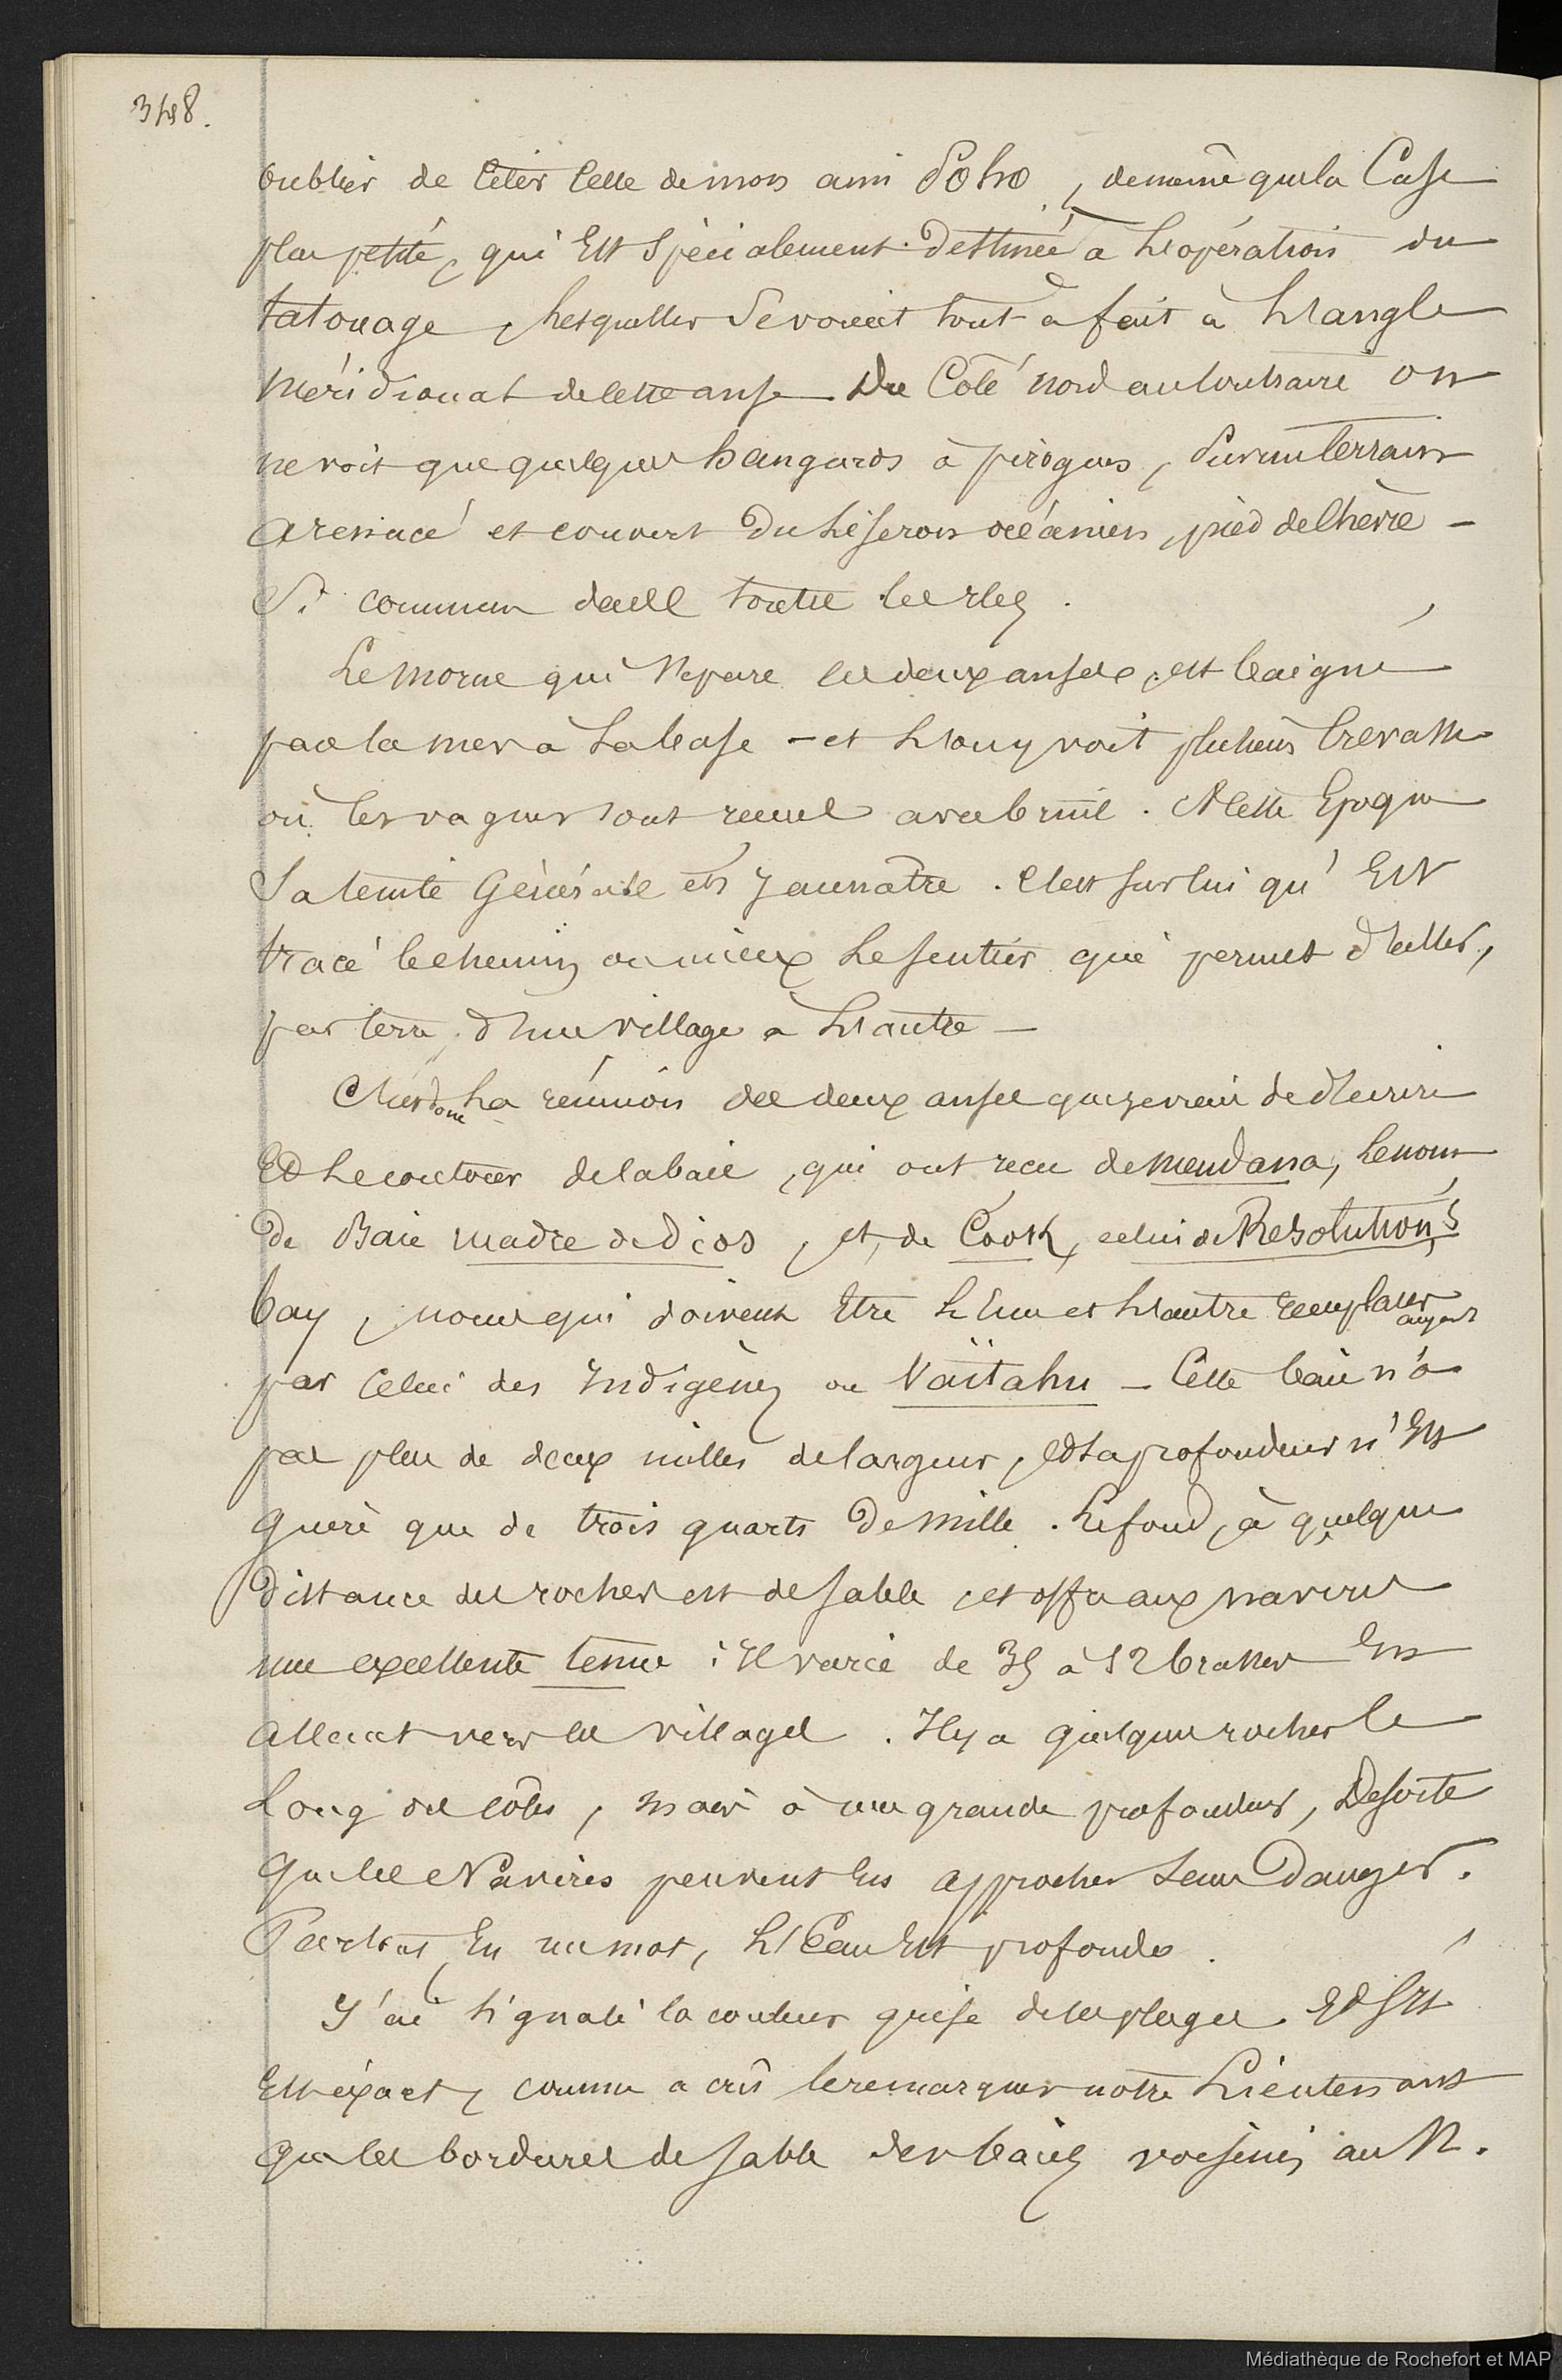 348.
oublier de citer celle de mon ami Poho, de même que la Case
plus petite, qui Est Spécialement destinée à l'opération du
tatouage, lesquelles se voient tout à fait à l'angle
méridional de cette anse — Du Côté nord au contraire on
ne voit que quelques hangards à pirogues, sur un terrain
arenacé et couvert du liseron océanien, pied de chèvre —
si commun dans toutes les îles.
Le morne qui sépare les deux anses, est baigné
par la mer à sa base — et l'on y voit plusieurs crevasses
où les vagues sont avec bruit. A cette Epoque
Sa teinte Générale est jaunâtre. C'est sur lui qu'Est
tracé le chemin ou mieux le sentier qui permet d'aller,
par terre, d'un village à l'autre —
C'est donc la réunion des deux anses que je viens de décrire
Et le contour de la baie, qui ont reçu de Mendana, le nom
de Baie madre de Dios, et, de Cook, celui de Resolution's
bay, noms qui doivent Etre l'un et l'autre remplacés
par Celui des Indigènes ou Vaïtahu — Cette baie n'a
pas plus de deux milles de largeur, et sa profondeur n'Est
guère que de trois quarts de mille. Le fond, à quelque
distance des rochers est de sable, et offre aux navires
une excellente tenue; Il varie de 35 à 12 brasses En
allant vers les villages. Il y a quelques rochers le
Long des côtes, mais à une grande profondeur, De sorte
que les Navires peuvent les approcher sans Danger.
Partout, En un mot, l'Eau Est profonde.
J'ai signalé la couleur grise de la plage. Et s'il
Est exact, comme a crû le remarquer notre Lieutenant
que les bordures de sable des baies voisines au N.
Médiathèque de Rochefort et MAP